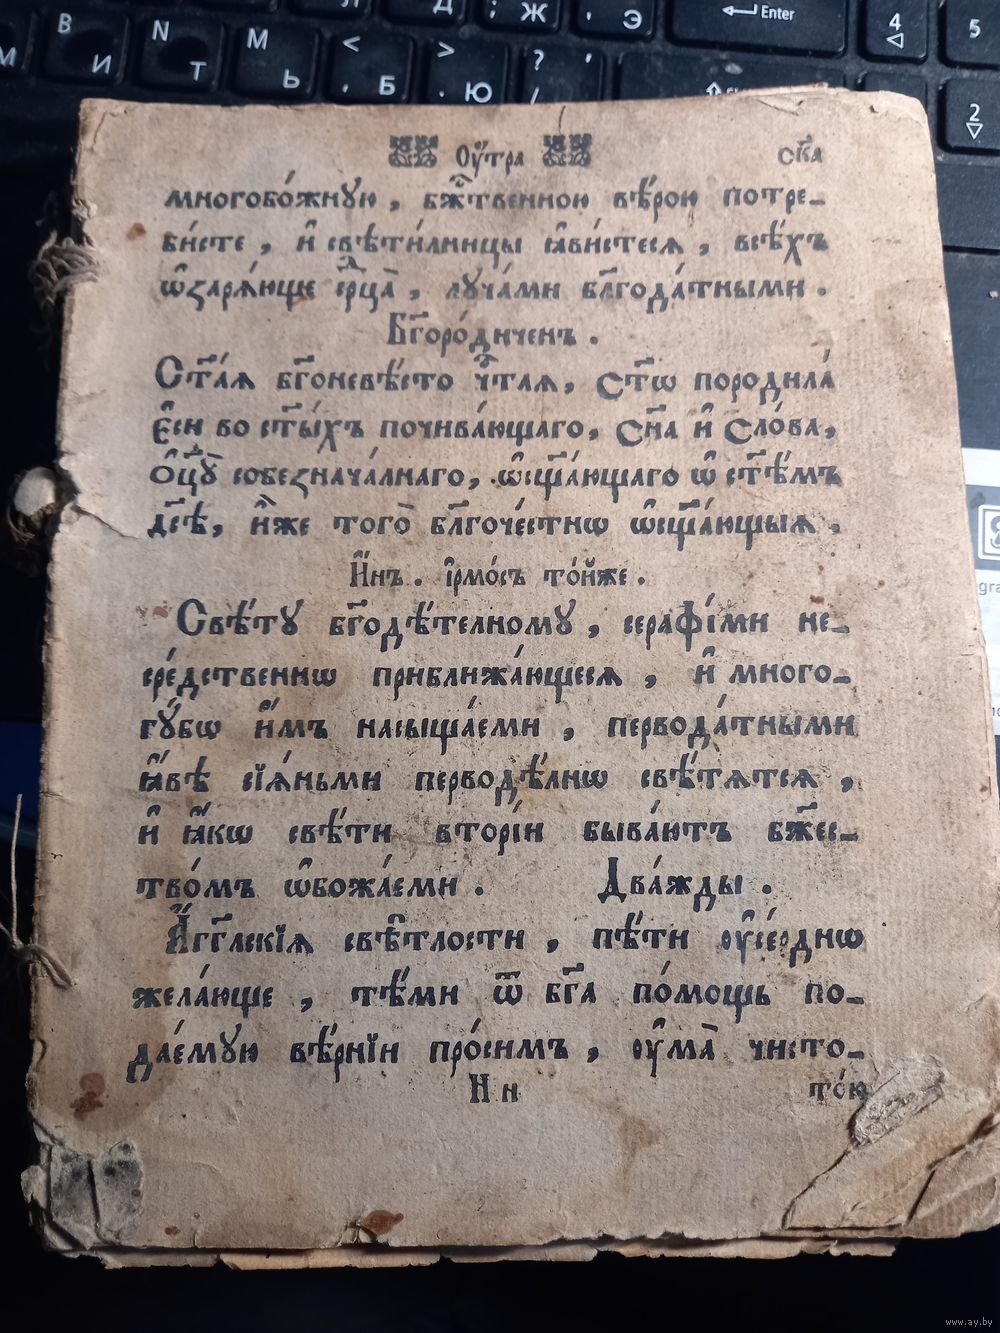 Оу҆́тра ск҃а
многобо́жнꙋю , бж҃твенною вѣ́рою потре-
би́сте , и҆ свѣти́лницы ꙗ҆ви́стеся , всѣ́хъ
ѡ҆заря́юще срⷣца̀ , лꙋча́ми бл҃года́тными .
Бг҃оро́диченъ .
Ст҃а́я бг҃оневѣ́сто чⷭ҇тая , ст҃ѡ породила̀
є҆си во ст҃ы́хъ почива́ющаго , сн҃а и҆ сло́ва ,
ѻ҆ц҃ꙋ̀ собезнача́лнаго , ѡ҆сщ҃а́ющаго ѡ҆ ст҃ѣ́мъ
дс҃ѣ , и҆̀же того̀ бл҃гоче́стнѡ ѡ҆сщ҃а́ющыя .
И҆́нъ . і҆рмо́съ то́йже .
Свѣ́тꙋ бг҃одѣ́телномꙋ , серафі́ми не-
сре́дственнѡ приближа́ющеся , и҆ много-
гꙋ́бѡ и҆́мъ насыща́еми , первода́тными
ꙗ҆́вѣ сїя́ньми перводѣ́лнѡ свѣ́тятся ,
и҆ ꙗ҆́кѡ свѣ́ти вторі́и быва́ютъ бж҃ес-
тво́мъ ѡ҆божа́еми . Два́жды .
А҆́гг҃лскїя свѣ́тлости , пѣ́ти оу҆се́рднѡ
жела́юще , тѣ́ми ѿ бг҃а по́мощь по-
дае́мꙋю вѣ́рнїи про́симъ , оу҆ма̀ чисто-
Н н то́ю
www.ay.by